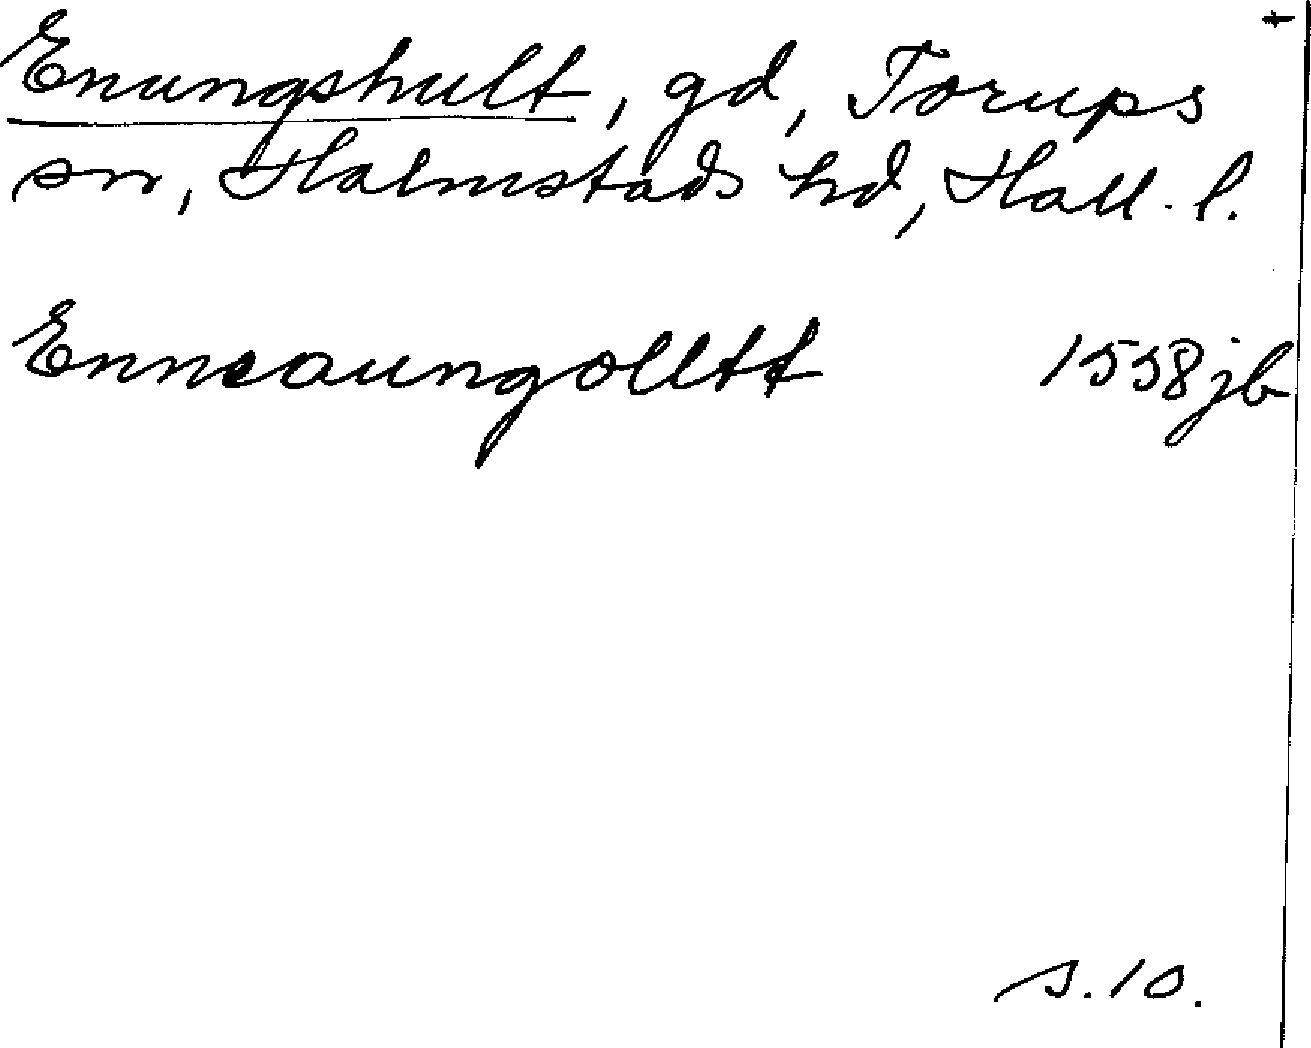 Enungshult, gd, Torups
sn, Halmstads hd, Hall. l.
Enneaungolltt 1558 jb
s. 10.